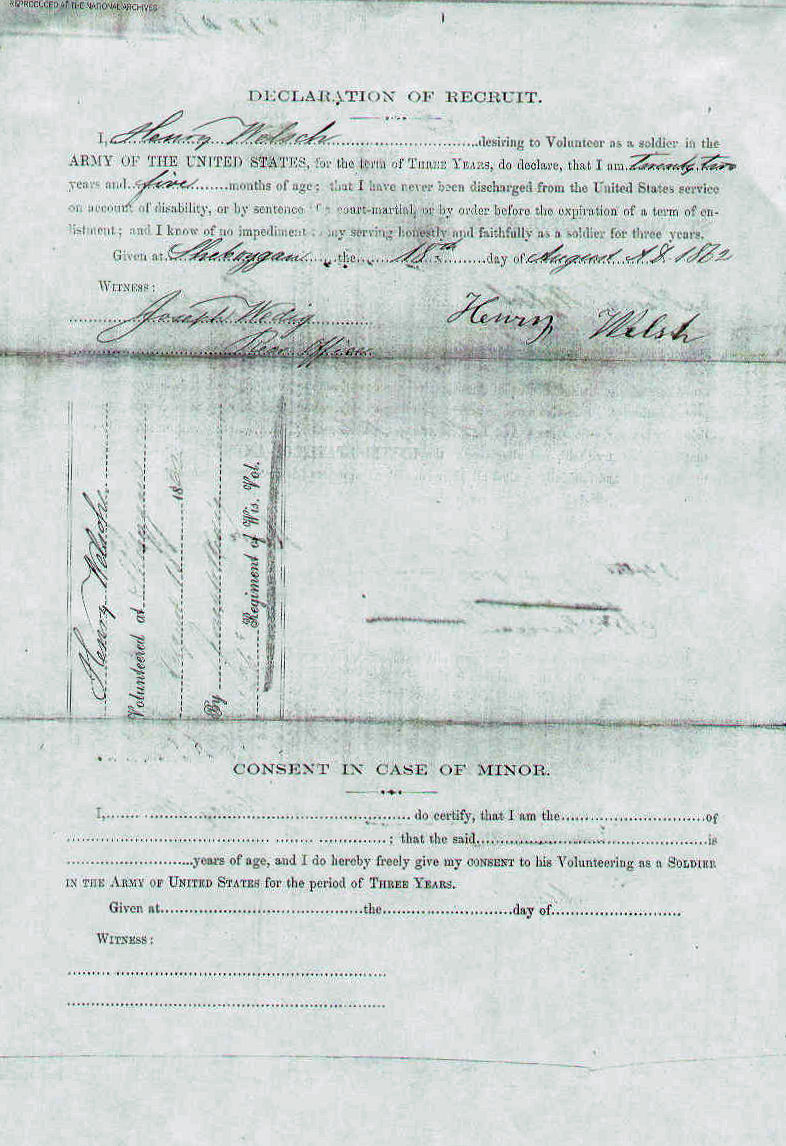 REPRODUCED AT THE NATIONAL ARCHIVES
DECLARATION OF RECRUIT.
I, Henry Welsch desiring to Volunteer as a soldier in the
ARMY OF THE UNITED STATES, for the term of THREE YEARS, do declare, that I am twenty two
years and five months of age; that I have never been discharged from the United States service
on account of disability, or by sentence of a court-martial, or by order before the expiration of a term of en-
listment; and I know of no impediment my serving honestly and faithfully as a soldier for three years.
Given at Sheboygan the 18th day of August A.D. 1862
WITNESS:
Joseph Wedig Henry Welsch
Officer
Henry Welsch
Volunteered at
18
By
Regiment of Wis. Vol.
CONSENT IN CASE OF MINOR.
I, do certify, that I am the of
; that the said is
years of age, and I do hereby freely give my CONSENT to his Volunteering as a SOLDIER
IN THE ARMY OF UNITED STATES for the period of THREE YEARS.
Given at the day of
WITNESS: